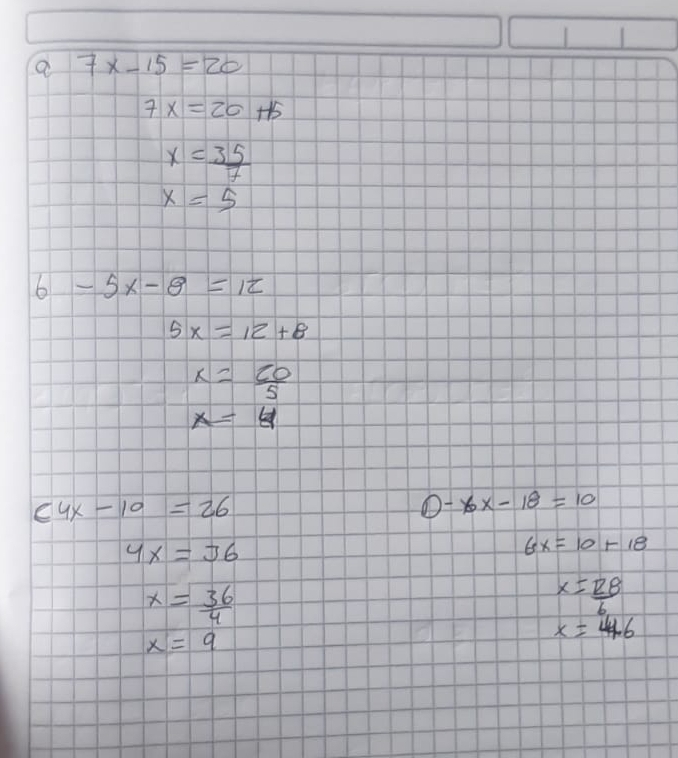 a 7x - 15 = 20
7x = 20 + 15
x = 35/7
x = 5
b - 5x - 8 = 12
5x = 12 + 8
x = 20/5
x = 4
C 4x - 10 = 26
4x = 36
x = 36/4
x = 9
D - 6x - 18 = 10
6x = 10 + 18
x = 28/6
x = 4.6